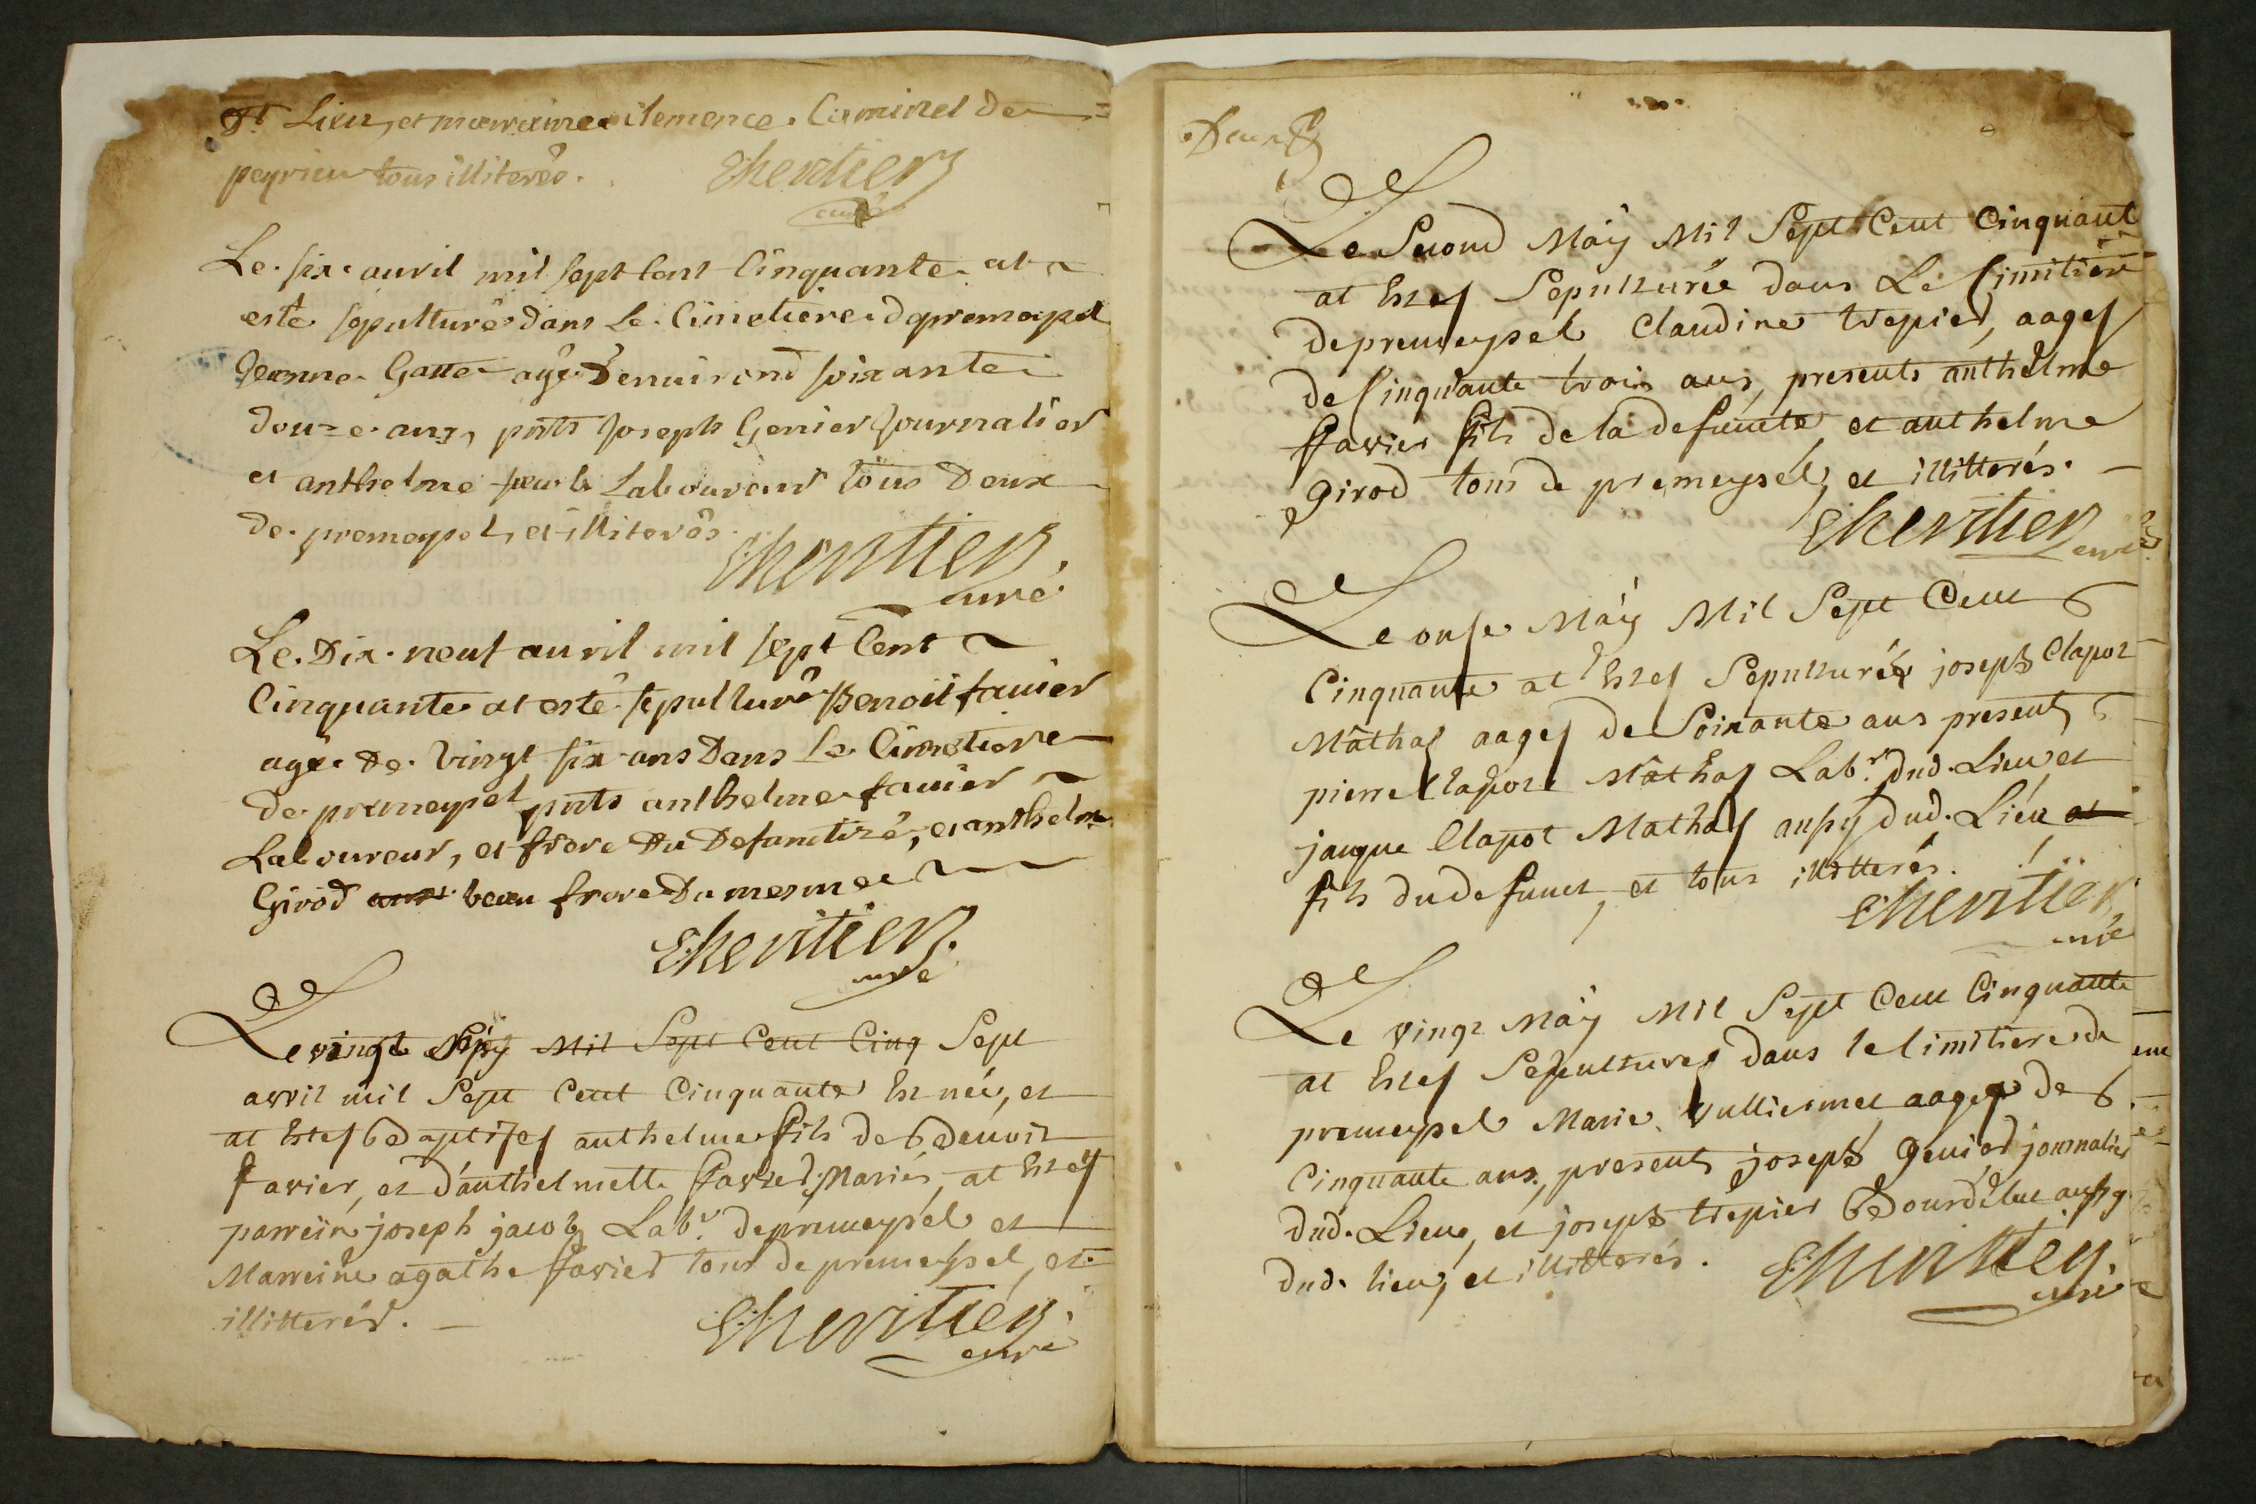 Lieu, et marraine clemence Caminel de
peyrieu tous illiterés.
Chevitier
curé
Le six avril mil sept cent Cinquante at
esté sepulturé dans Le Cimetiere d premeysel
Jeanne Gatte agé denvirond soixante
douze ans, pnts Joseph Genier Journalier
et anthelme Laboureur tous Deux
de premeysel, et illiterés
Chevitier
curé
Le Dix neuf auvril mil sept Cent
Cinquante at esté sepulturé Benoit favier
agée De Vingt six ans Dans Le Cimetiere
de premeysel pnts anthelme favier
Laboureur, et frere Du Defunct, et anthelme
Girod beau frere Du mesme
Chevitier
curé
Le vingt Mil Sept Cent Cinq Sept
avril mil Sept Cent Cinquante Est née, et
at Estes Baptises anthelme fils de Benoit
favier, et d'anthelmette favier, Mariés, at Estes
parrein joseph jacob Labr. de premeysel et
Marreine agathe favier tous de premeysel, et
illitterés.
Chevitier
curé
Deux
Le Second May Mil Sept Cent Cinquant
at Estes Sepulturée dans Le Cimitiere
de premeysel Claudine trepier, aages
de Cinquante trois ans, presents anthelme
favier fils de la defuncte, et anthelme
Girod tous de premeysel, et illitterés.
Chevitier
curé
Le onse May Mil Sept Cent
Cinquante at Estes Sepulturés joseph Clapot
Mâthas aages de Soixante ans present
pierre Clapot Mâthas Labr. dud. Lieu, et
jacque Clapot Mathas aussy dud. Lieu et
fils du defunct, et tous illitterés.
Chevitier
curé
Le vingt May Mil Sept Cent Cinquante
at Estes Sepultures dans le Cimitiere de
premeysel Marie Vulliermet aages de
Cinquante ans, present joseph Genier journalier
dud. Lieu, et joseph trepier aussy
dud. lieu, et illitterés.
Chevitier
curé